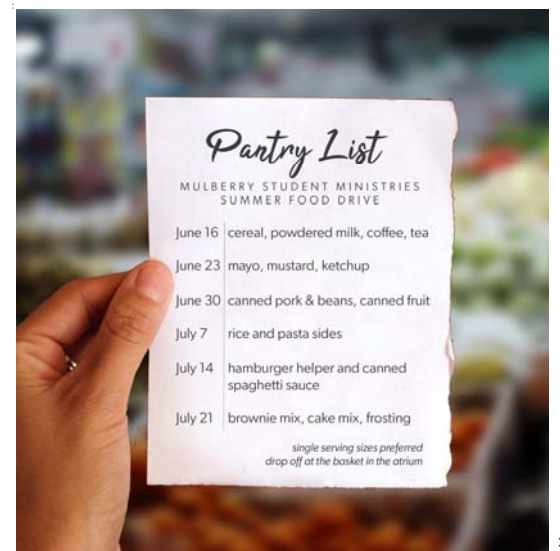 Pantry List
MULBERRY STUDENT MINISTRIES
SUMMER FOOD DRIVE
June 16 cereal, powdered milk, coffee, tea
June 23 mayo, mustard, ketchup
June 30 canned pork & beans, canned fruit
July 7 rice and pasta sides
July 14 hamburger helper and canned
spaghetti sauce
July 21 brownie mix, cake mix, frosting
single serving sizes preferred
drop off at the basket in the atrium